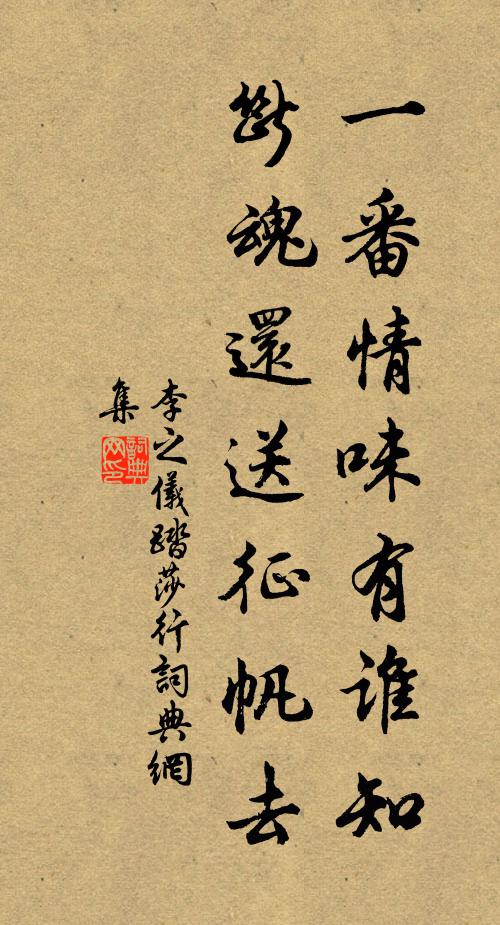 一番情味有誰知
斷魂還送征帆去
李之儀踏莎行詞典網
集
詞典网印